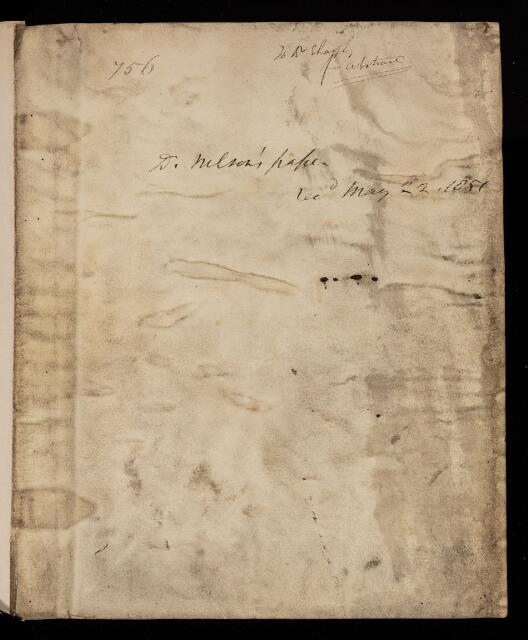 756
To Dr Sharpey
for abstract
Dr Nelson's paper
Recd May 22. 1851